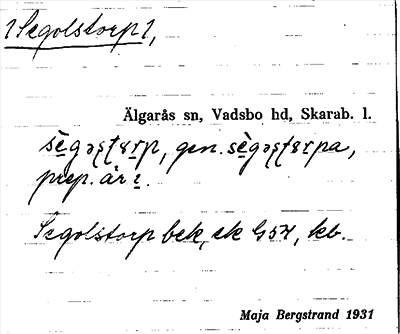 1 Segolstorp 1,
Älgarås sn, Vadsbo hd, Skarab. l.
gen.
prep. är i.
Segolstorp bek, ek G 54, kb.
Maja Bergstrand 1931